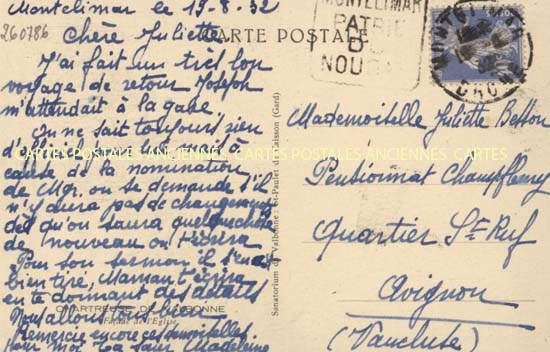 Montelimar le 19-8-32
260786
Chère Juliette
J'ai fait un très bon
voyage de retour Joseph
m'attendait à la gare
On ne sait toujours rien
à
cause de la nomination
de Mgr. on se demande s'il
n'y aura pas de changement
dès qu'on saura quelque chose
de nouveau on t'écrira
Pour son sermon il s'en est
bien tiré, Maman t'écrira
en te donnant des détails
Nous allons tous bien
Remercie encore ces demoiselles
pour moi ta sœur Madeleine
CHARTREUSE DE VALBONNE
de l'Eglise
CARTE POSTALE
MONTELIMAR
PATRIE
DU
NOUGAT
MONTELIMAR
DROME
Sanatorium de Valbonne
(Gard)
CARTES POSTALES ANCIENNES CARTES POSTALES ANCIENNES CARTES
Mademoiselle Juliette Besson
Pensionnat Champfleury
Quartier St-Ruf
Avignon
(Vaucluse)